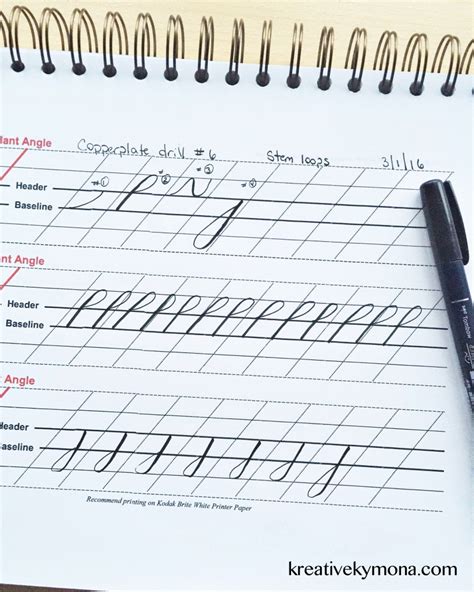 lant Angle
Copperplate drill # 6 Stem loops 3/1/16
#1 #2 #3 #4
Header
Baseline
ant Angle
Header
Baseline
t Angle
Header
Baseline
Recommend printing on Kodak Brite White Printer Paper
kreativekymona.com